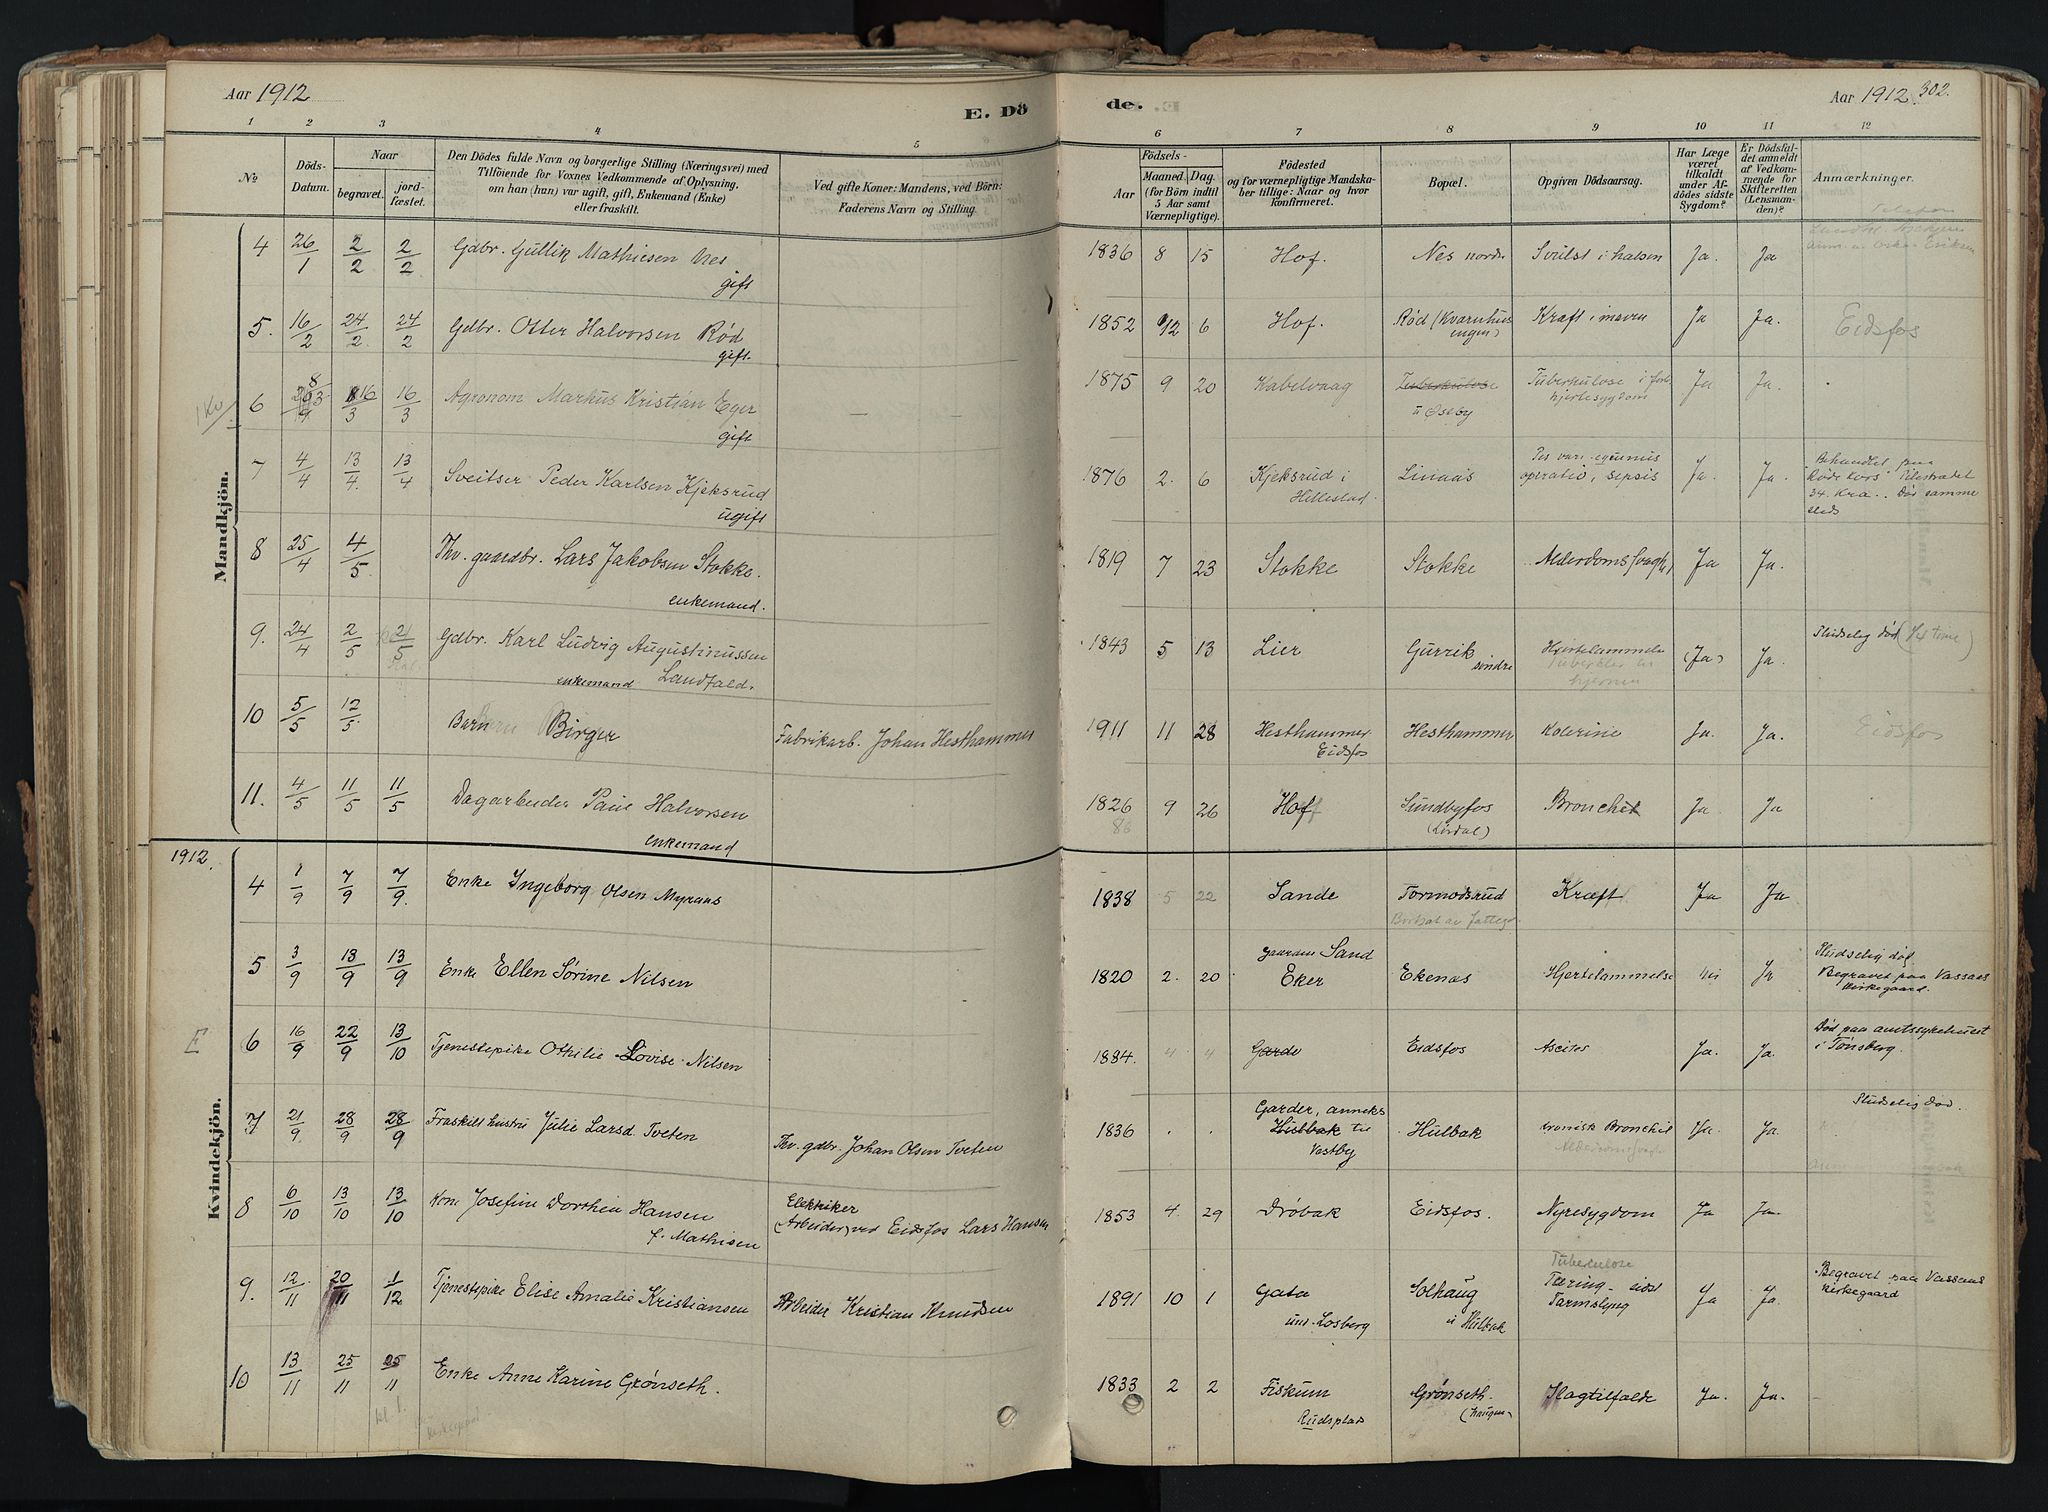 Aar 1912
E. Dö
de.
Aar 1912. 302.
1 2 3 4 5 6 7 8 9 10 11 12
№
Döds-Datum.
Naar
begravet.
jord-fæstet.
Den Dödes fulde Navn og borgerlige Stilling (Næringsvei) med
Tilföiende for Voxnes Vedkommende af Oplysning,
om han (hun) var ugift, gift, Enkemand (Enke)
eller fraskilt.
Ved gifte Koner: Mandens, ved Börn:
Faderens Navn og Stilling.
Födsels-
Aar
Maaned. Dag.
(for Börn indtil
5 Aar samt
Værnepligtige).
Födested
og for værnepligtige Mandska-
ber tillige: Naar og hvor
konfirmeret.
Bopæl.
Opgiven Dödsaarsag.
Har Læge
været
tilkaldt
under Af-
dödes sidste
Sygdom?
Er Dödsfal-
det anmeldt
af Vedkom-
mende for
Skifteretten
(Lensman-
den)?
Anmærkninger.
Mandkjön.
4 26/1 2/2 2/2 Gdbr. Gullik Mathiesen Nes
gift
1836 8 15 Hof. Nes nordre Svulst i halsen Ja. Ja
5. 16/2 24/2 24/2 Gdbr. Otter Halvorsen Rød
gift.
1852 12 6 Hof. Rød (Kvarnhus
engen) Kræft i maven Ja Ja. Eidsfos
6 16/3 16/3 Agronom Markus Kristian Eger
gift
—
1875 9 20 Kabelvaag Tuberkulose
u Oseby Tuberkulose i forb.
hjertesygdom Ja Ja
7 4/4 13/4 13/4 Sveitser Peder Karlsen Kjeksrud
ugift
1876 2. 6 Kjeksrud i
Hillestad. Linaas operatio, sepsis Ja. Ja. Behandlet paa
Røde Kors Pilestrædet
34. Kra.. Død samme
steds
8 25/4 4/5 Fhv. gaardbr. Lars Jakobsen Stokke.
enkemand.
1819 7 23 Stokke Stokke Alderdomssvagh. Ja Ja.
9. 24/4 2/5 21/5 Gdbr. Karl Ludvig Augustinussen
enkemand Landfald.
1843 5 13 Lier Gurrik
søndre Hjertelammelse
(Ja) Ja. Pludselig død
10 5/5 12/5 Barn Birger Fabrikarb. Johan Hesthammer
1911 11 28 Hesthammer.
Eidsfos Hesthammer Kolerine Ja. Ja. Eidsfos
11. 4/5 11/5 11/5 Dagarbeider Paul Halvorsen
enkemand
1826 9 26 Hof Sundbyfos
(Lørdal) Bronchit Ja Ja
1912.
Kvindekjön.
4 1/9 7/9 7/9. Enke Ingeborg Olsen Myraas
1838 5 22 Sande Tormodsrud
Kræft Ja Ja
5 3/9 13/9 13/9 Enke Ellen Sørine Nilsen
1820 2. 20 Sand
Eker Ekenæs Hjertelammelse Nei Ja Pludselig død.
Begravet paa Vassaas
kirkegaard.
E
6 16/9 22/9 13/10 Tjenestepike Othilie Lovise Nilsen
1884. 4 4 Garde Eidsfos Ascites Ja. Ja. Død paa amtssykehuset
i Tønsberg.
7 21/9. 28/9 28/9 Fraskilt hustru Julie Larsd. Tveten Fhv. gdbr. Johan Olsen Tveten
1836 . . Garder, anneks
Hulbak til
Vestby Hulbak Kronisk Bronchit
Ja. Ja. Pludselig død.
8 6/10 13/10 13/10 Kone Josefine Dorthea Hansen
f. Mathisen Elektriker
(Arbeider) ved Eidsfos Lars Hansen
1853 4. 29 Drøbak Eidsfos. Nyresygdom Ja Ja.
9. 12/11 20/11 1/12 Tjenestepike Elise Amalie Kristiansen Arbeider Kristian Knudsen
1891 10 1 Gata
und. Losberg Solhaug
u Hulbak Tuberkulose
Tæring - sidst
Tarmslyng Ja Ja. Begravet paa Vassaas
kirkegaard
10 13/11 25/11 25/11 Enke Anne Karine Grønseth.
kl. 1.
1833 2 2 Fiskum
Rudsplads Grønseth.
(haugen) Slagtilfælde Ja. Ja.